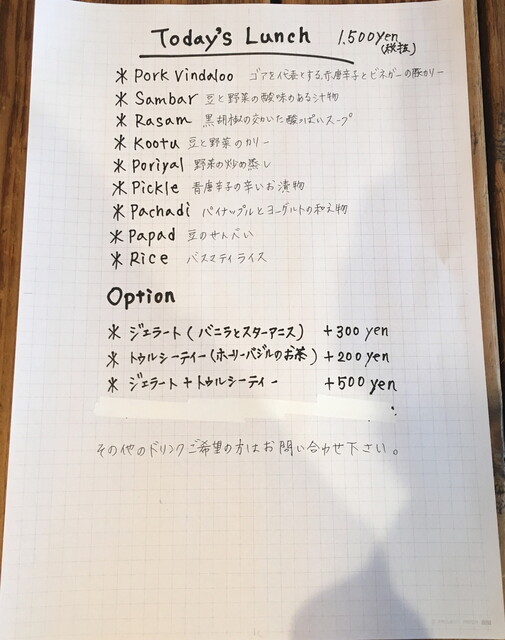 Today's Lunch 1.500yen
(税抜)
* Pork Vindaloo ゴアを代表とする赤唐辛子とビネガーの豚カリー
* Sambar 豆と野菜の酸味のある汁物
* Rasam 黒胡椒の効いた酸っぱいスープ
* Kootu 豆と野菜のカリー
* Poriyal 野菜の炒め蒸し
* Pickle 青唐辛子の辛いお漬物
* Pachadi パイナップルとヨーグルトの和え物
* Papad 豆のせんべい
* Rice バスマティライス
Option
* ジェラート(バニラとスターアニス) +300 yen
* トゥルシーティー(ホーリーバジルのお茶) +200 yen
* ジェラート+トゥルシーティー +500 yen
その他のドリンクご希望の方はお問い合わせ下さい。